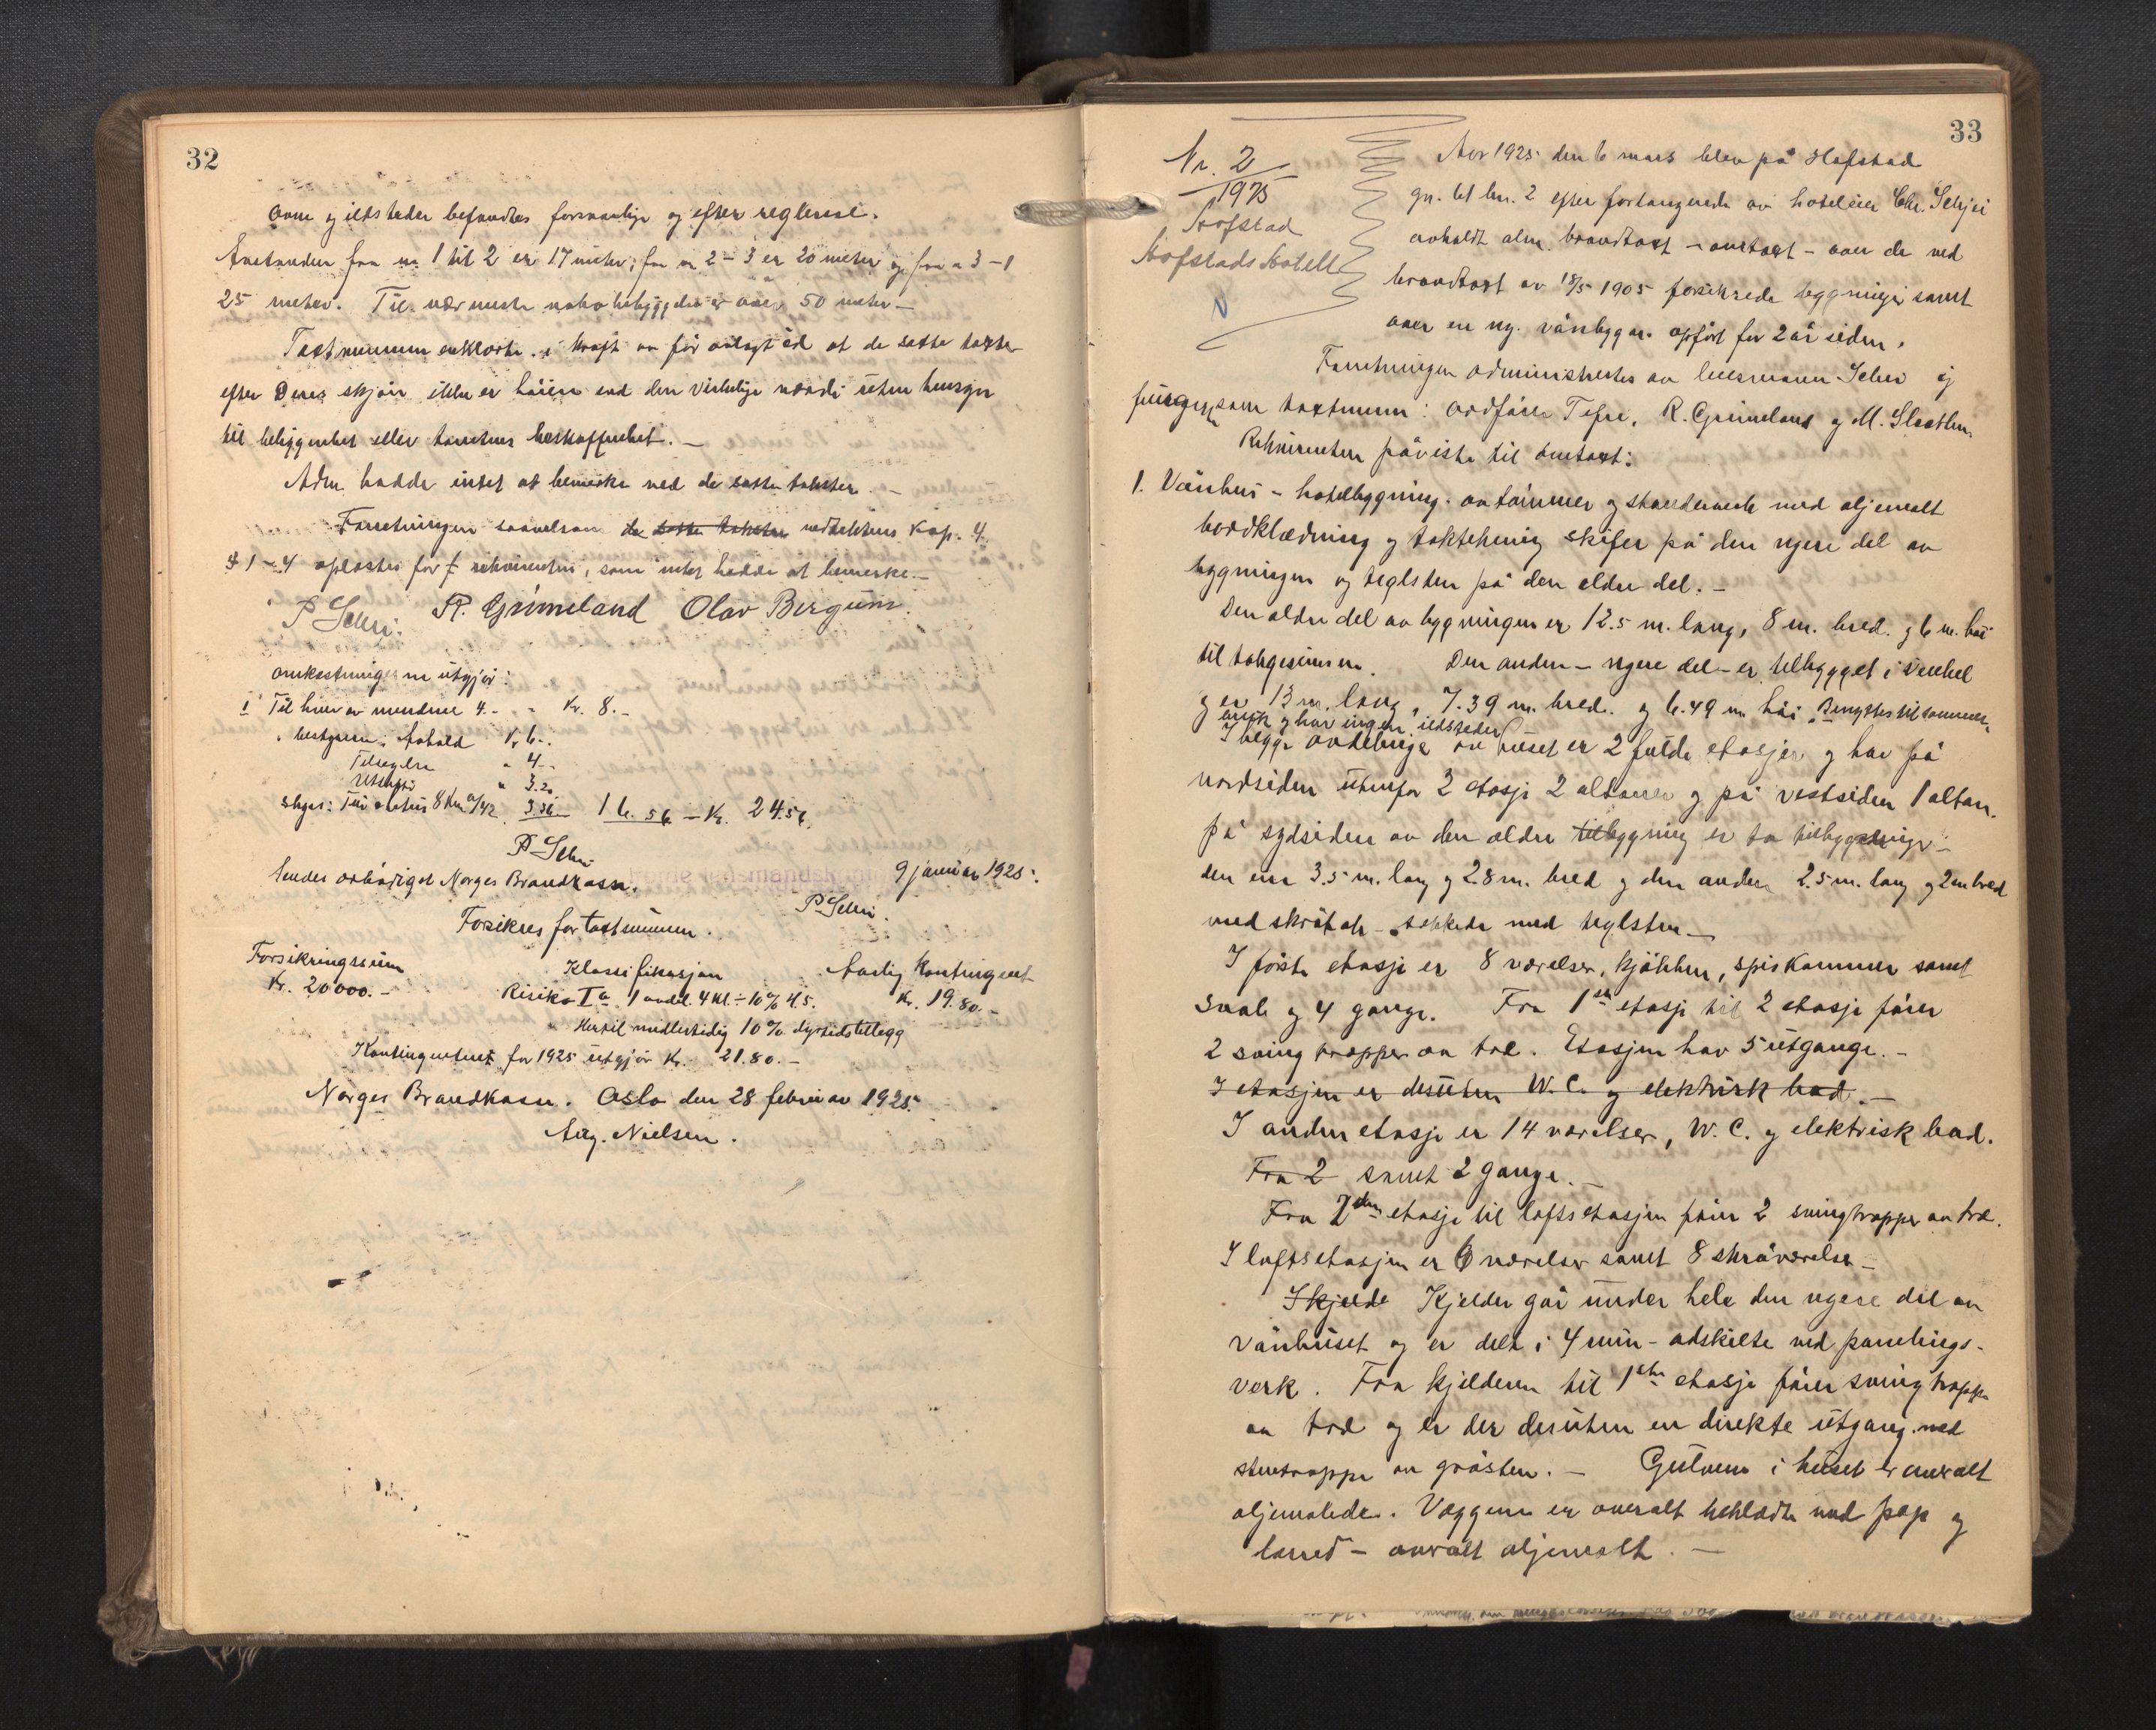 32
Ovne og ildsteder befandtes forsvarlige og efter reglerne.
Avstanden fra nr 1 til 2 er 17 meter, fra nr 2 – 3 er 20 meter og fra " 3 – 1
25 meter. Til nærmeste nabobebyggelse er over 50 meter –
Takstmennene erklærte i kraft av før avlagt ed at de satte takster
efter deres skjøn ikke er høiere end den virkelige værdi uten hensyn
til beliggenhet eller tomtens beskaffenhet. –
Adm. hadde intet at bemerke ved de satte takster. –
Forretningen saavelsom de satte takster vedtektens Kap. 4
§ 1 – 4 oplæstes for rekvirenten, som intet hadde at bemerke. –
P Schei. R. Grimeland Olav Bergum.
Omkostningerne utgjør:
Til hver av mendene 4. – " Kr. 8. –
bestyreren: Avhold Kr 6 –
Tilsigelse " 4 –
Utskrift " 3.20
Skyss: Tur – retur 8 Km a/42 3.36 16.56 – Kr. 24.56.
P Schei
Sendes ærbødigst Norges Brandkasse. 9 januar 1925.
P Schei.
Forsikres for takstsummen.
Forsikringssum Klassifikasjon Aarlig Kontingent
Kr. 20000. – Risiko Ia 1 avdel. 4 Kl. ÷ 10% 45. Kr. 19.80. –
Hertil midlertidig 10% dyrtidstillegg
Kontingentet for 1925 utgjør Kr. 21.80. –
Norges Brandkasse. Oslo den 28 februar 1925.
Aug. Nielsen.
33
Nr. 2
1925
Hofstad
Hofstads Hotell
Aar 1925 den 6 mars blev på Hofstad
gn. 61 bn. 2 efter forlangende av hoteleier Chr. Schjei
avholdt alm. brandtakst – omtakst – over de ved
brandtakst av 18/5 1905 forsikrede bygninger samt
over en ny. vånbygn. opført for 2 år siden.
Forretningen administrertes av lensmann Schei og
fungerer som takstmenn: ordfører Tefre, R. Grimeland og M. Slatlem
Rekvirenten påviste til omtakst:
1. Vånhus – hotelbygning av tømmer og standerverk med oljemalt
bordklædning og taktekning skifer på den nyere del av
bygningen og teglsten på den eldre del. –
Den eldre del av bygningen er 12.5 m. lang, 8 m. bred. og 6 m. høi
til takgesimsen. Den anden – nyere del – er tilbygget i vinkel
og er 13 m. lang, 7.39 m. bred. og 6.49 m høi. Benyttes til sommer-
bruk og har ingen ildsteder
I begge avdelinger av huset er 2 fulde etasjer og har på
nordsiden utenfor 2 etasje 2 altaner og på vestsiden 1 altan.
På sydsiden av den eldre tilbygning er to tilbygninger –
den ene 3.5 m. lang og 2.8 m. bred og den anden 2.5 m. lang og 2 m bred
med skråtak – tekkede med teglsten –
I første etasje er 8 værelser, kjøkken, spiskammer samt
sval og 4 gange. Fra 1ste etasje til 2 etasje fører
2 svingtrapper av træ. Etasjen har 5 utgange. –
I etasjen er desuten W.C. og elektrisk bad. –
I anden etasje er 14 værelser, W.C. og elektrisk bad.
Fra 2 samt 2 gange. –
Fra 2den etasje til loftsetasjen fører 2 svingtrapper av træ.
I loftsetasjen er 6 værelser samt 8 skråværelse –
I kjelde Kjelder går under hele den nyere del av
vånhuset og er delt i 4 rum – adskilte ved panelings-
verk. Fra kjelderen til 1ste etasje fører svingtrappe
av træ og er der desuten en direkte utgang med
stentrappe av gråsten. – Gulvene i huset er overalt
oljemalede. Væggene er overalt beklædte med pap og
lerred – overalt oljemalt. –